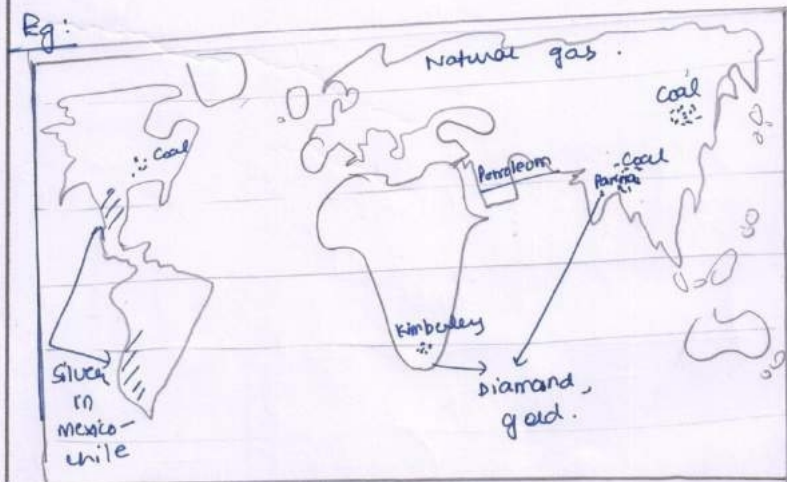 Eg:
Natural gas.
Coal
Coal
Petroleum
Coal
Panna
Kimberley
Diamond,
gold.
Silver
in
Mexico-
chile